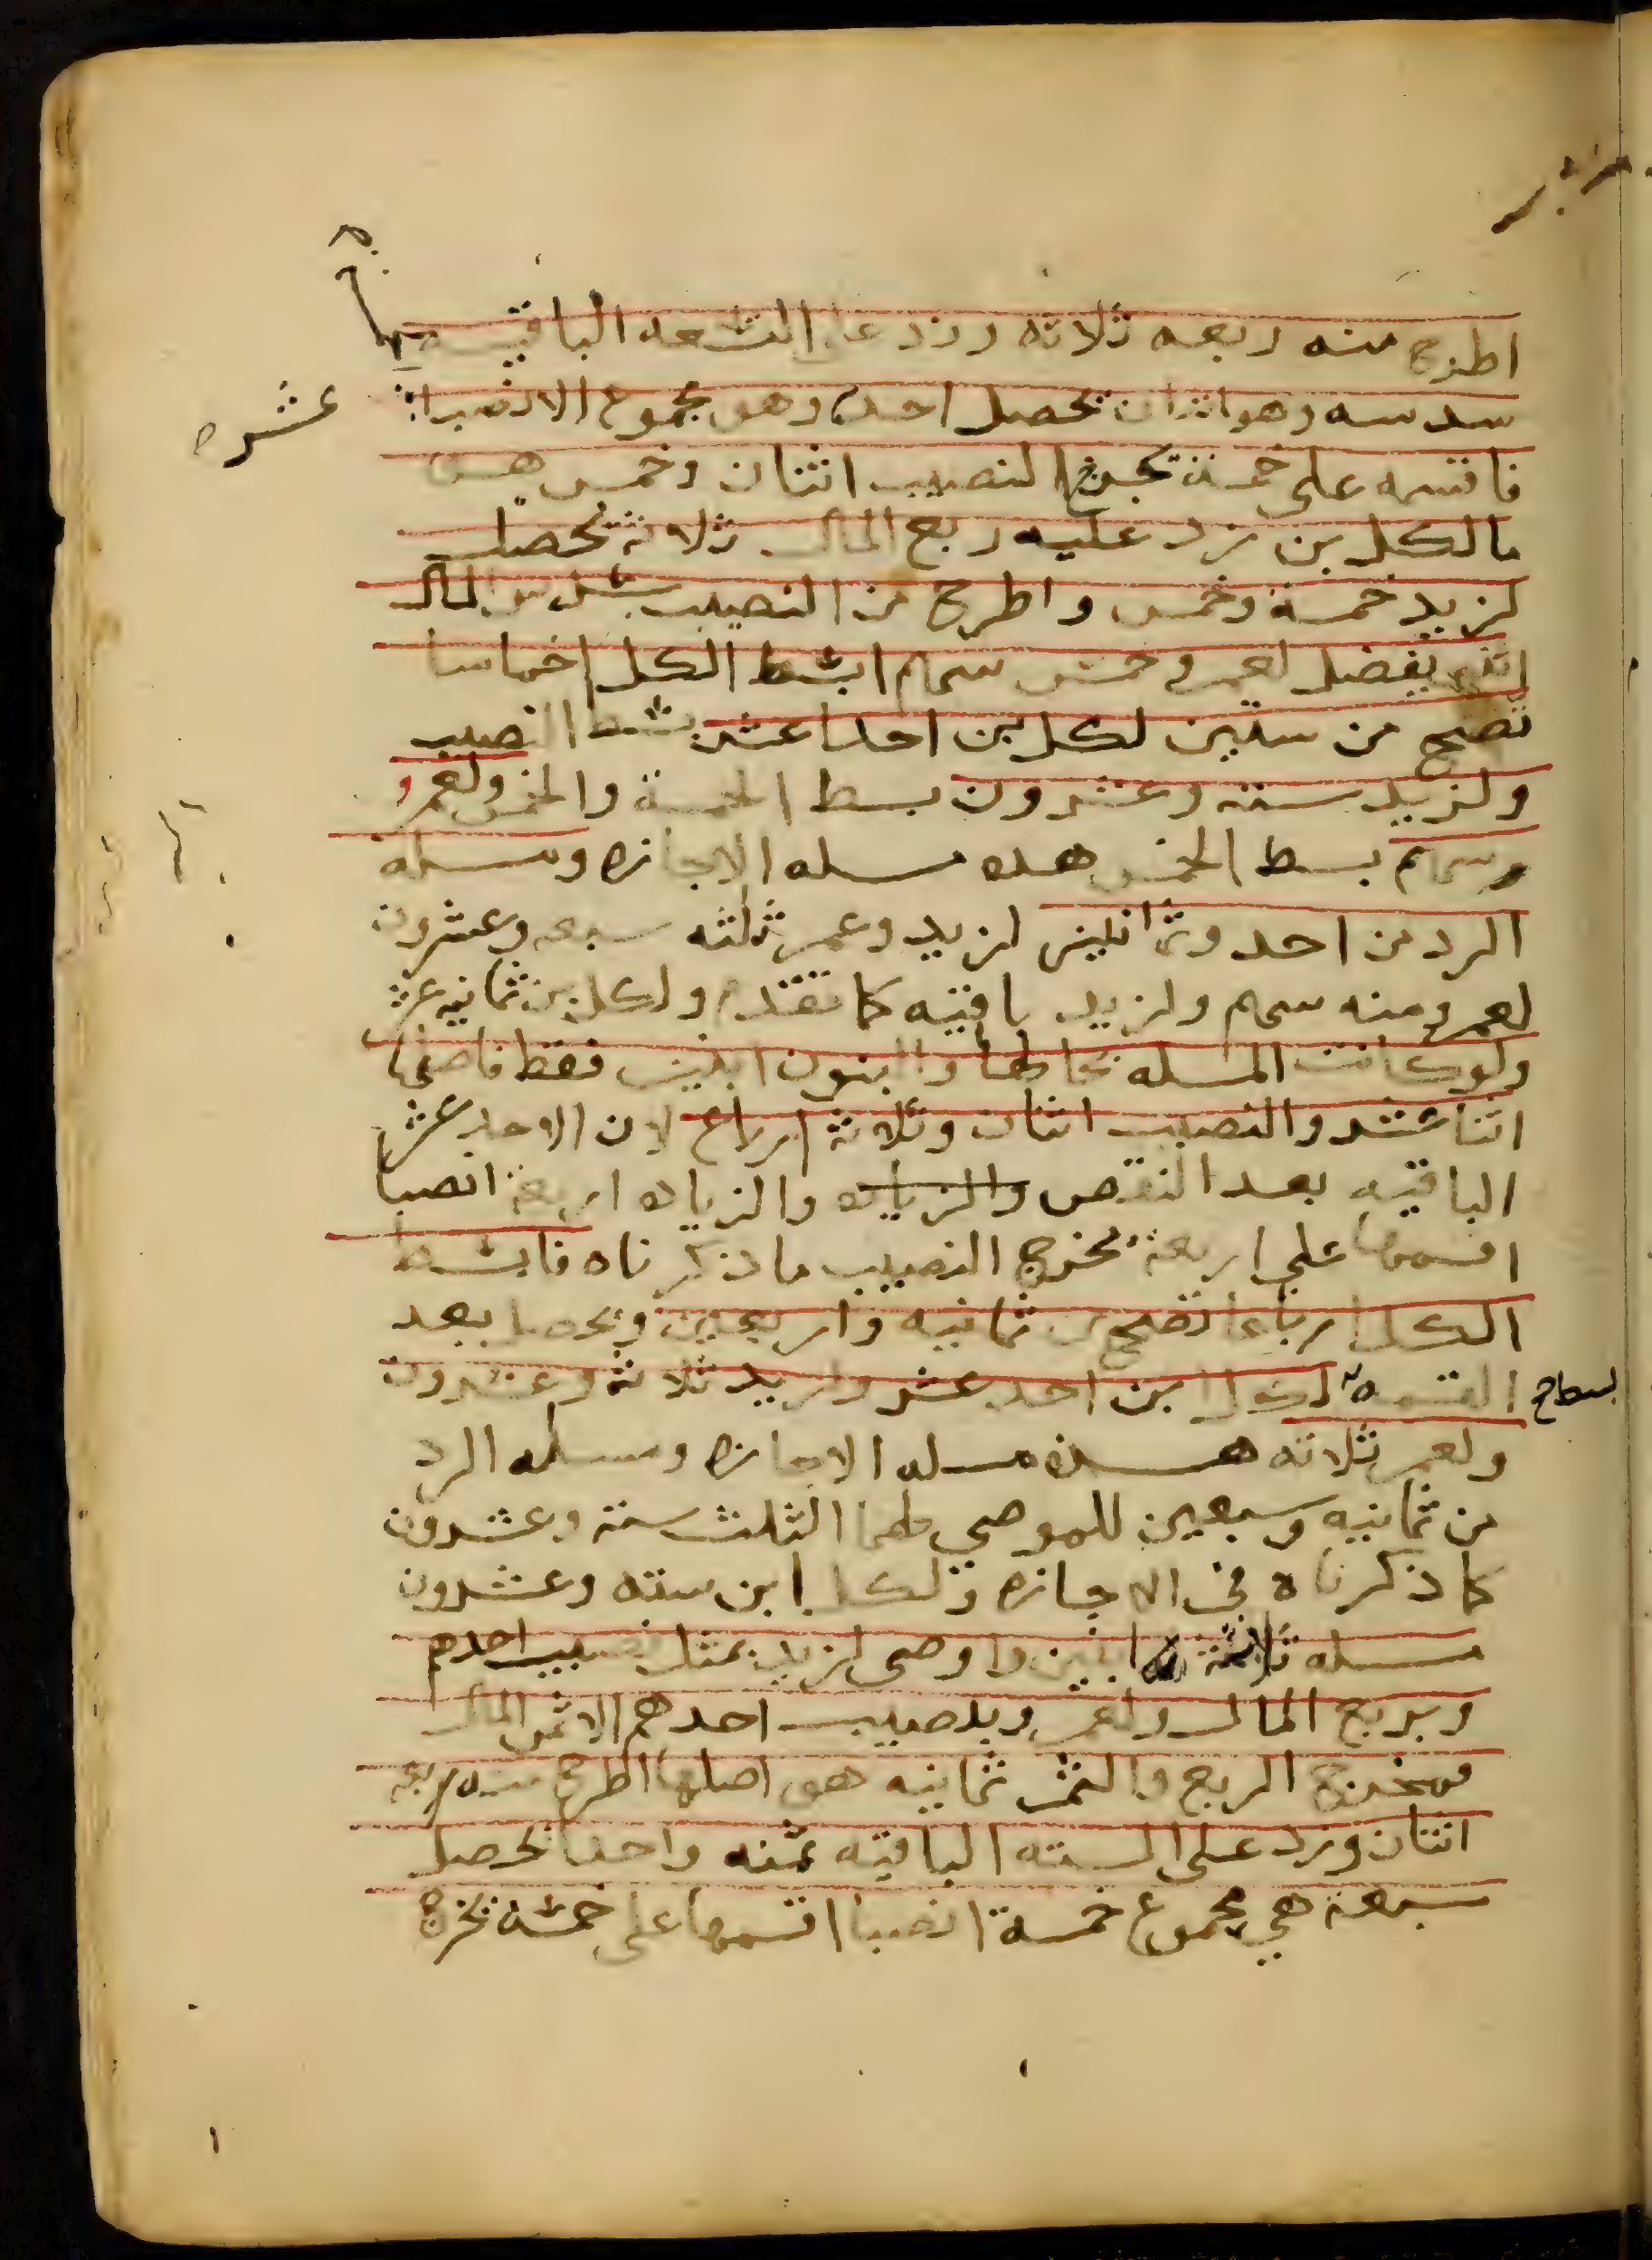 اطرح منه ربعه ثلاثه وزد على التسعه الباقيه
سدسه وهو اثنان تحصل احد وهو مجموع الانصبا عشره
فاقسمه على خمسة تخرج النصيب اثنان وخمس هى
ما لكل بن زد عليه ربع المال ثلاثة تحصل
لزيد خمسة وخمس واطرح من النصيب سدس المال
اثنين يفضل لعمرو خمس سهم ابسط الكل اخماسا
تصح من ستين لكل بن احد عشر بسط النصيب
ولزيد ستة وعشرون بسط الخمسة والخمس ولعمرو
وسهم بسط الخمس هذه مسله الاجازه ومسله
الرد من احد وثمانين لزيد وعمر ثلثه سبعه وعشرون
لعمرو منه سهم ولزيد باقيه كما تقدم ولكل بن ثمانيه عشر
ولو كانت المسله بحالها والبنون ابنين فقط فاصلها
اثنا عشر والنصيب اثنان وثلاثة ارباع لان الاحد عشر
الباقيه بعد النقص والزياده والزياده اربعة انصبا
اقسمها على اربعة تخرج النصيب ما ذكرناه فابسط
الكل ارباعا تصح من ثمانيه واربعين وتحصل بعد
القسمه لكل ابن احد عشر ولزيد ثلاثة وعشرون
ولعمر ثلاثه هذه مسله الاجازه ومسله الرد
من ثمانيه وسبعين للموصى لهما الثلث ستة وعشرون
كما ذكرناه في الاجازه ولكل ابن سته وعشرون
مسله ثلاثة ابنين واوصى لزيد بمثل نصيب احدهم
وبربع المال ولعمر وبنصيب احدهم الا ثمن المال
فمخرج الربع والثمن ثمانيه هو اصلها اطرح منه ربعه
اثنان وزد على السته الباقيه ثمنه واحدا تحصل
سبعة هي مجموع خمسة انصبا اقسمها على خمسة تخرج